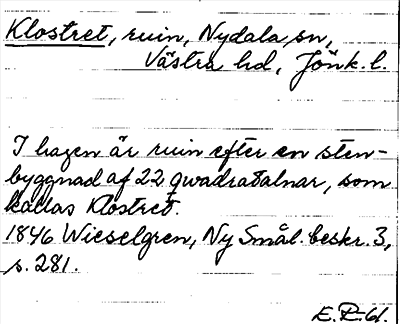 Klostret, ruin, Nydala sn,
Västra hd, Jönk. l.
I hagen är ruin efter en sten-
byggnad af 22 qwadratalnar, som
kallas Klostret.
1846 Wieselgren, Ny Smål. beskr. 3,
s. 281.